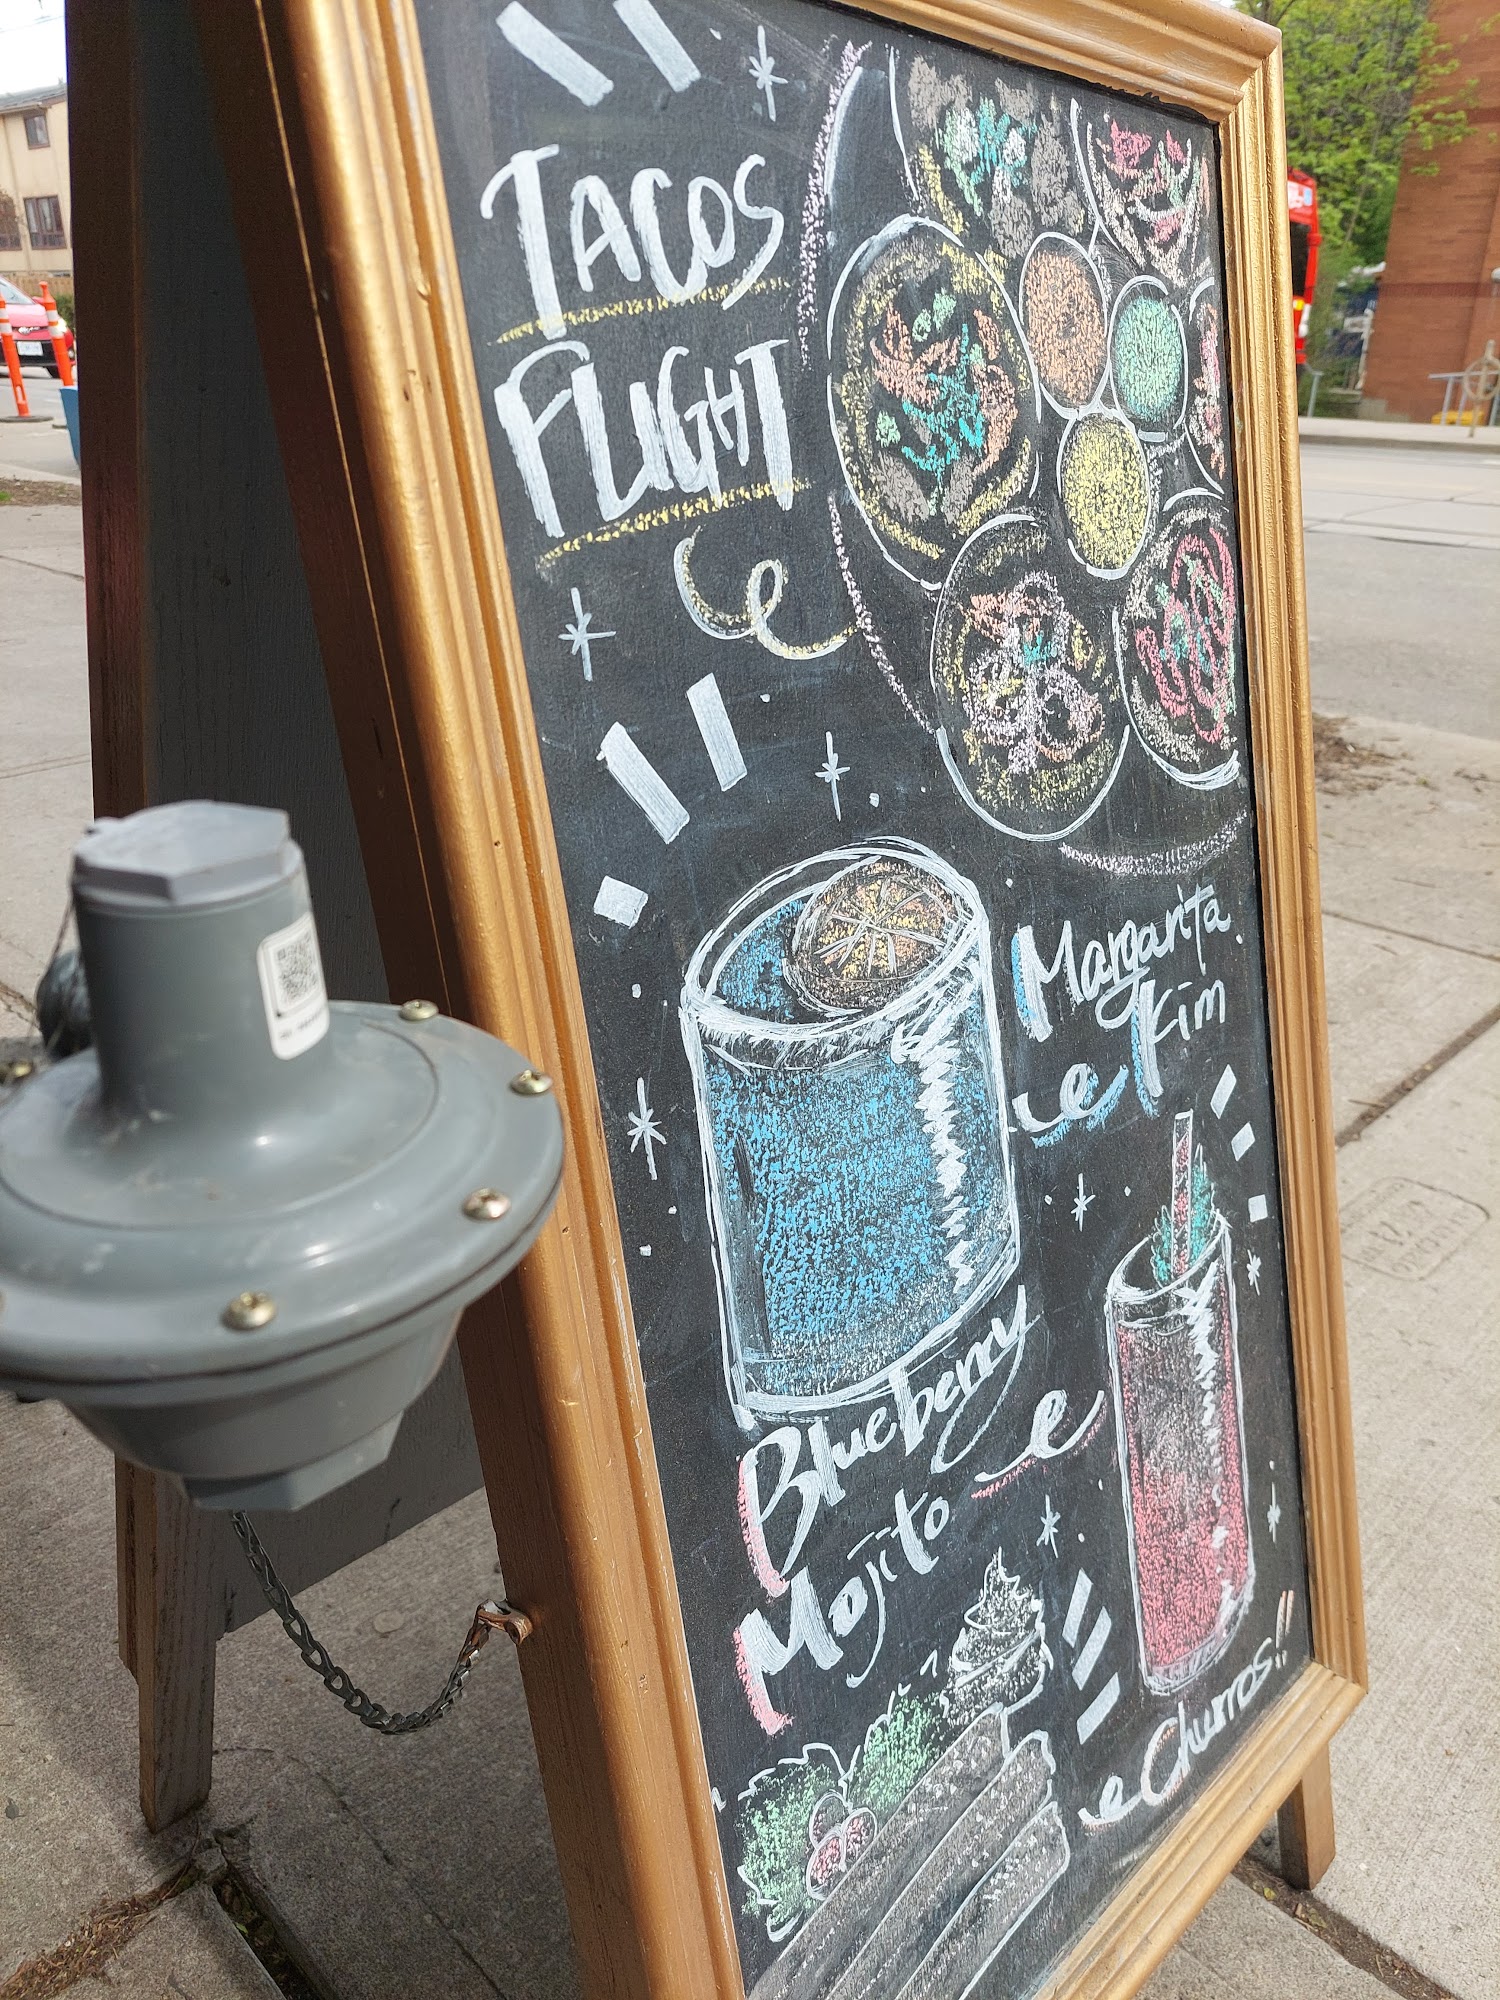 TACOS
FLIGHT
Margarita
Kim
Blueberry
Mojito
Churros!!